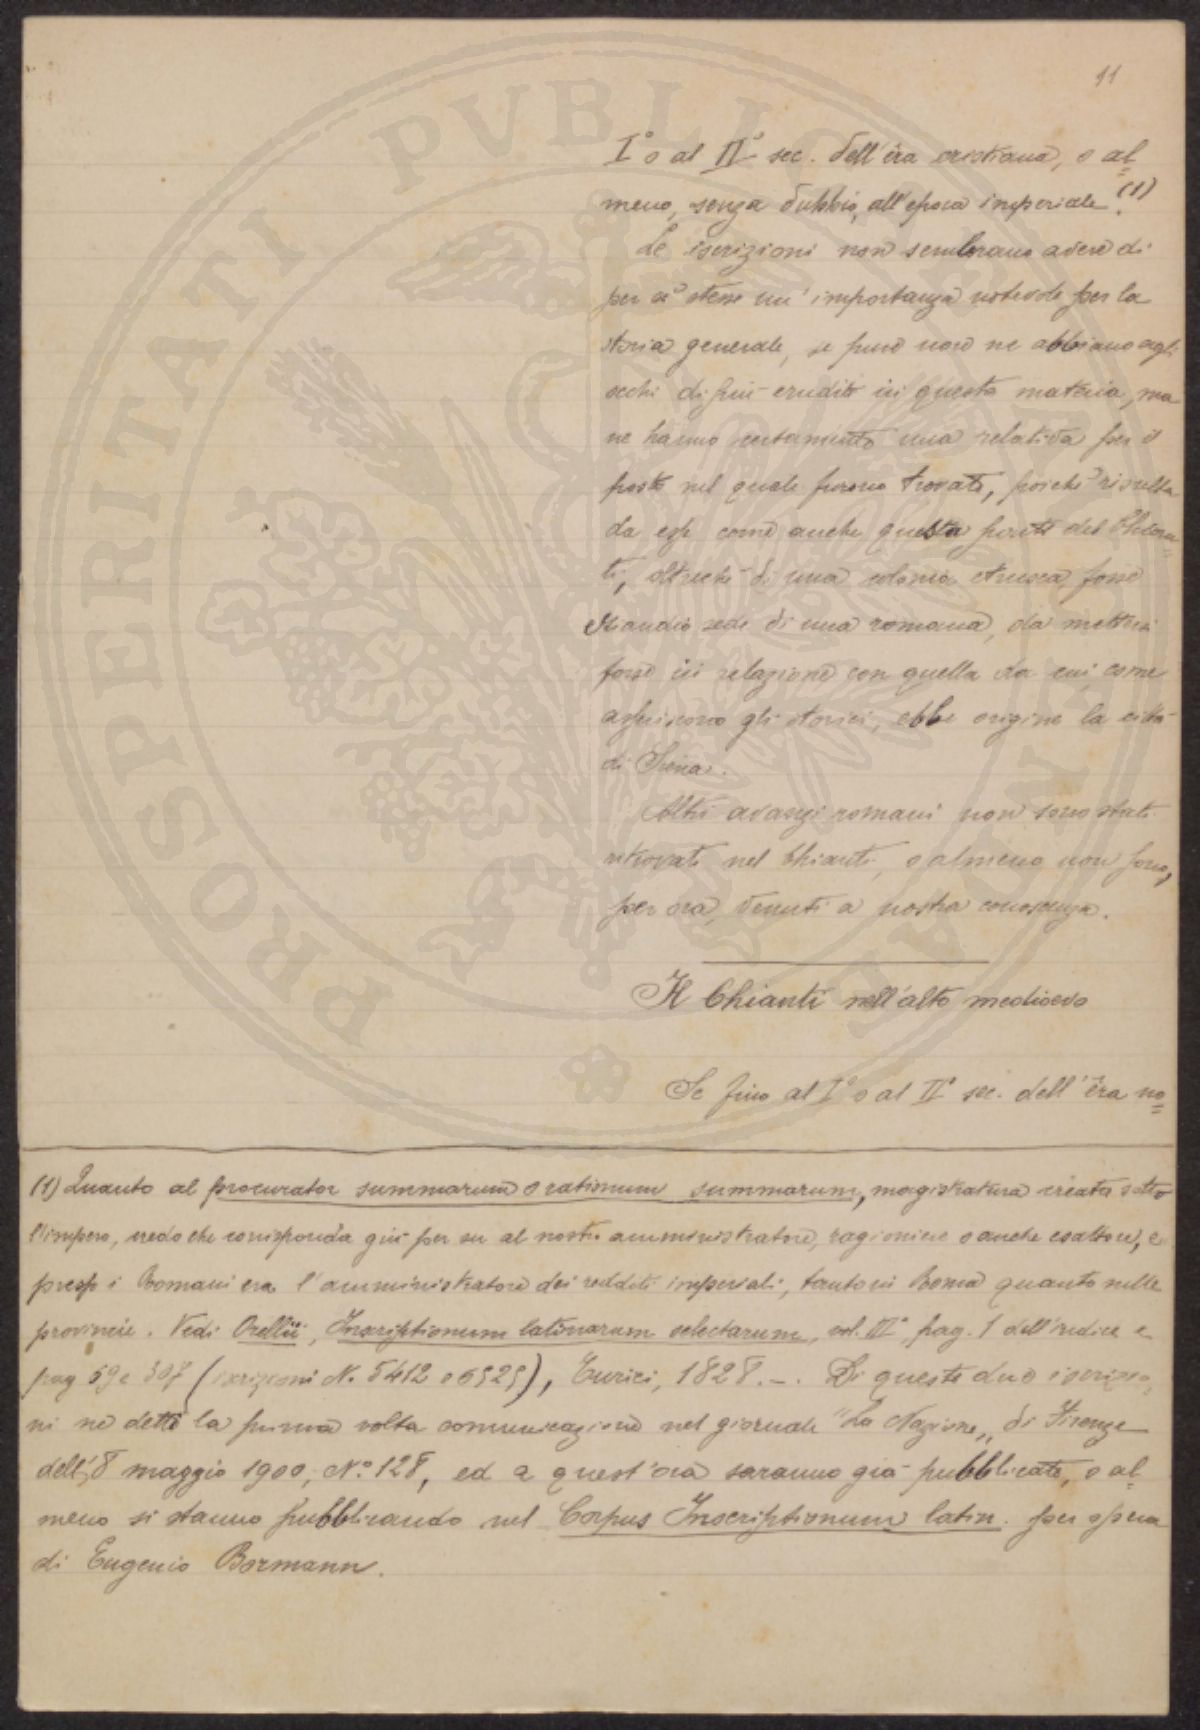 11
I° o al II° sec. dell'èra cristiana, o al=
meno, senza dubbio, all'epoca imperiale.(1)
Le iscrizioni non sembrano avere di
per sé stesse un'importanza notevole per la
storia generale, se pure non ne abbiano agli
occhi di più eruditi in questa materia, ma
ne hanno certamente una relativa per il
posto nel quale furono trovate, poiché risulta
da esse come anche questa parte del Chian=
ti, oltreché di una colonia etrusca, fosse
stata sede di una romana, da mettersi
forse in relazione con quella da cui, come
asseriscono gli storici, ebbe origine la città
di Siena.
Altri avanzi romani non sono stati
ritrovati nel Chianti, o almeno non sono,
per ora, venuti a nostra conoscenza.
Il Chianti nell'alto medioevo
Se fino al I° o al II° sec. dell'èra no=
(1) Quanto al procurator summarum o rationum summarum, magistratura creata sotto
l'impero, credo che corrisponda giù per su al nostro amministratore, ragioniere o anche esattore, e
presso i Romani era l'amministratore dei redditi imperiali, tanto in Roma quanto nelle
provincie. Vedi Orellii, Inscriptionum latinarum selectarum, vol. III° pag. 1 dell'indice e
pag 59 e 307 (iscrizioni N. 5412 e 6525), Turici, 1828. -. Di queste due iscrizio=
ni ne detti la prima volta comunicazione nel giornale "La Nazione,, di Firenze
dell'8 maggio 1900, N.° 128, ed a quest'ora saranno già pubblicate, o al=
meno si stanno pubblicando nel Corpus Inscriptionum latin. per opera
di Eugenio Bormann.
PROSPERITATI PVBLICAE